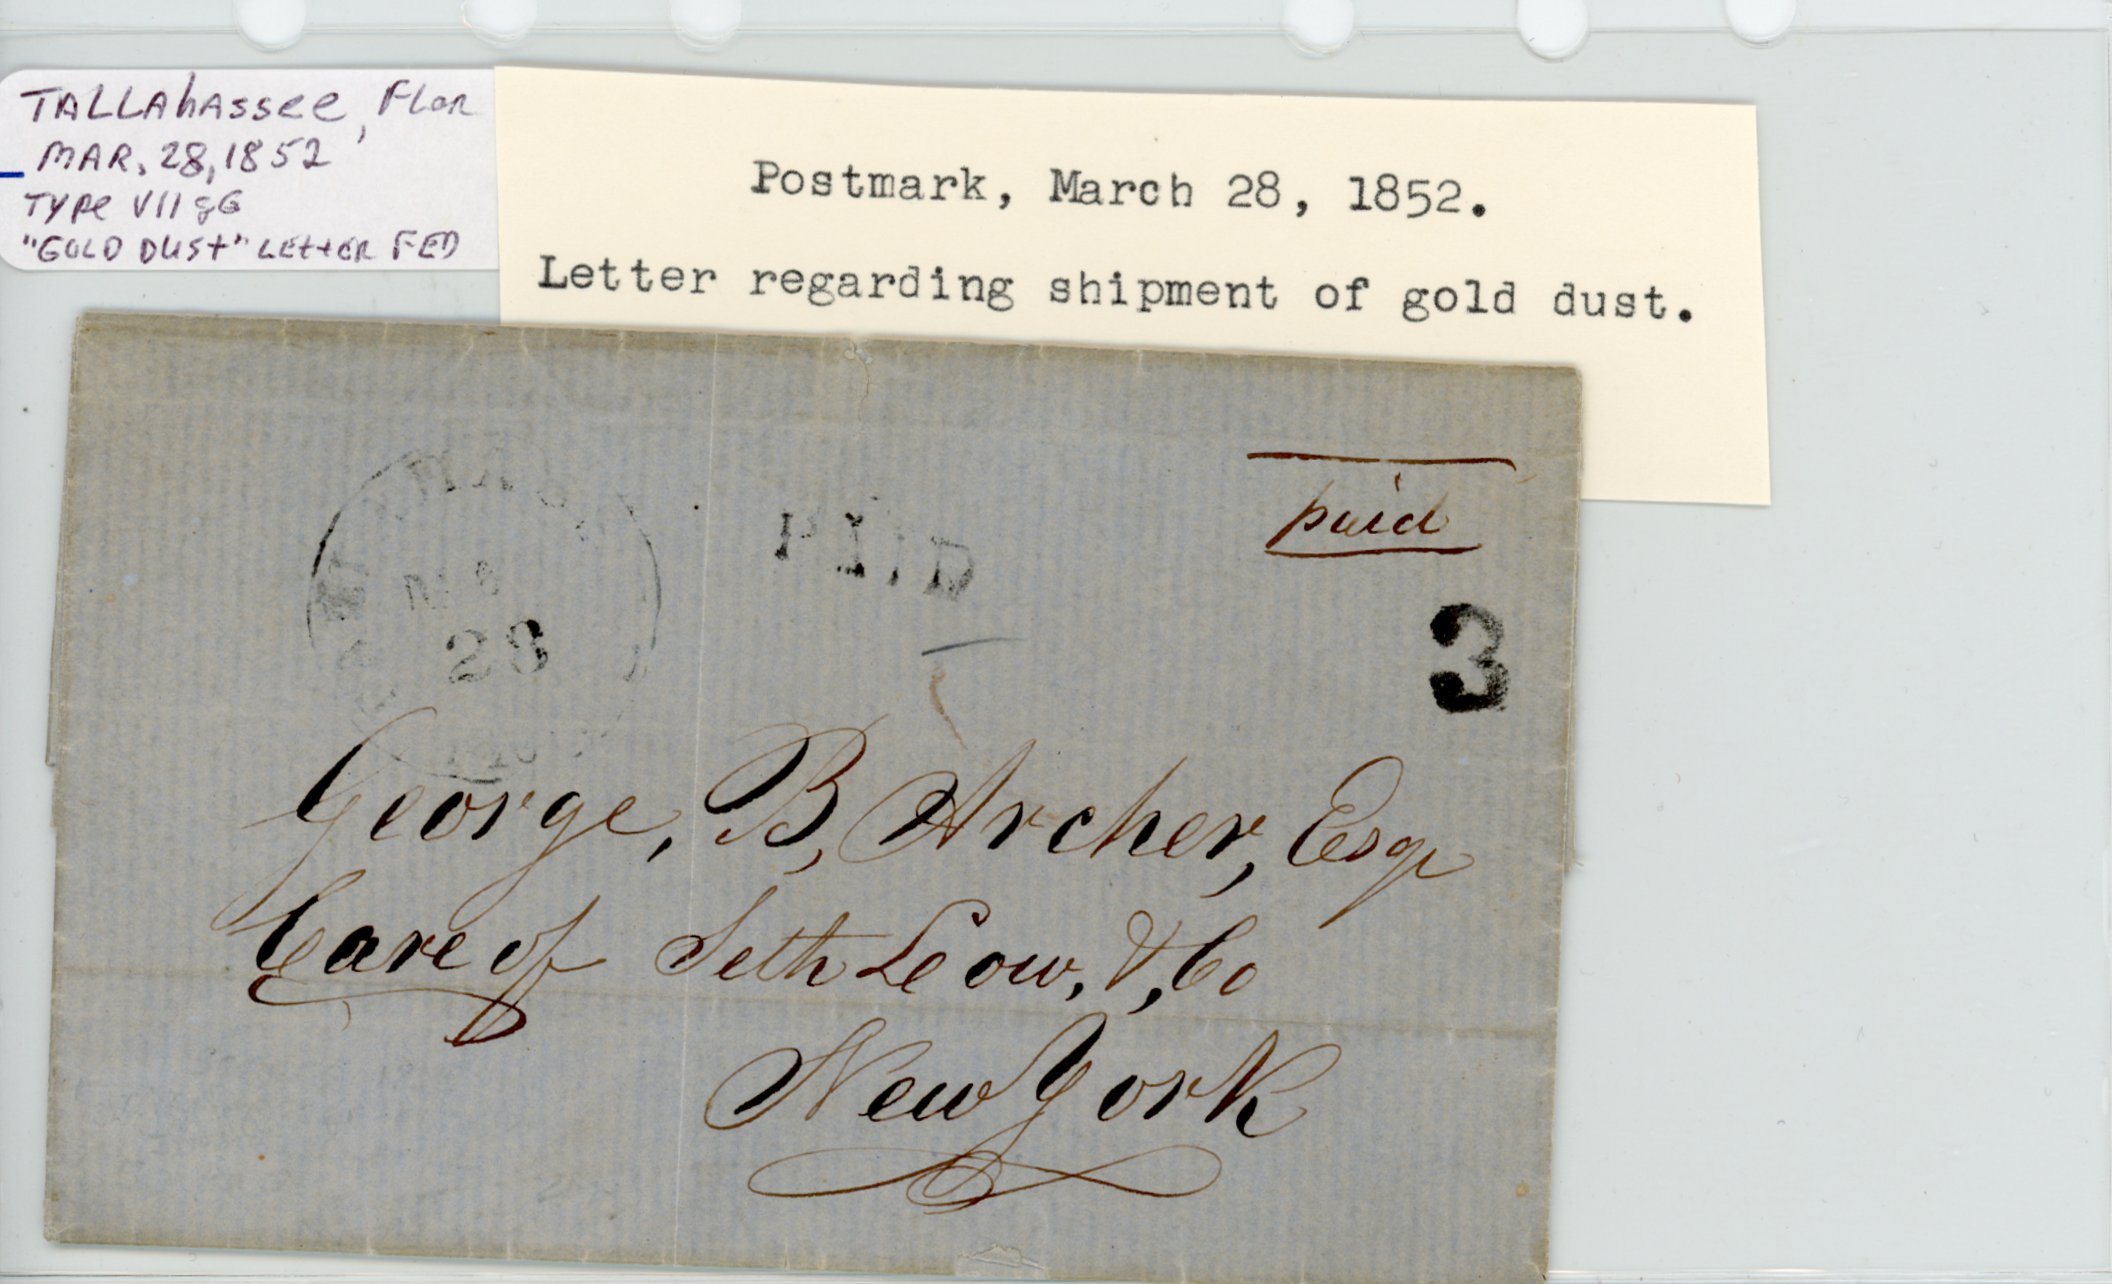 TALLAhASSEE, FLOR
MAR. 28, 1852
TYPE VII & G
"GOLD DUST" LETTER FED
Postmark, March 28, 1852.
Letter regarding shipment of gold dust.
28
PAID
paid
3
George, B, Archer, Esqr
Care of Seth Leow, &, Co
New York